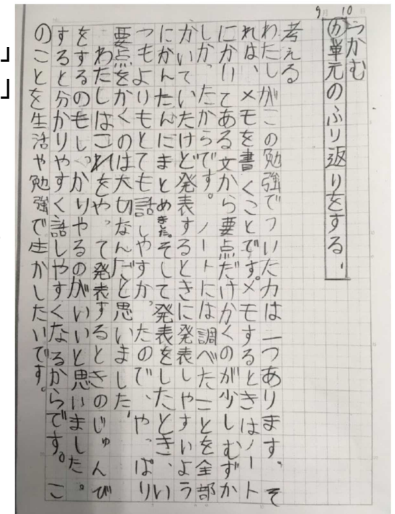 9 10
つかむ
め 単元のふり返りをする。
考える
わたしがこの勉強でついた力は一つあります。そ
れは、メモを書くことです。メモするときはノート
にかいてある文から要点だけかくのが少しむずか
しかったからです。ノートには調べたことを全部
かいていたけど発表するときに発表しやすいよう
にかんたんにまとめました。そして発表をしたとき、い
つもよりもとても話しやすかったので、やっぱり
要点をかくのは大切なんだと思いました。
わたしはこれをやって発表するときのじゅんび
をするのもしっかりやるのがいいと思いました。
すると分かりやすく話しやすくなるからです。こ
のことを生活や勉強で生かしたいです。
」
」